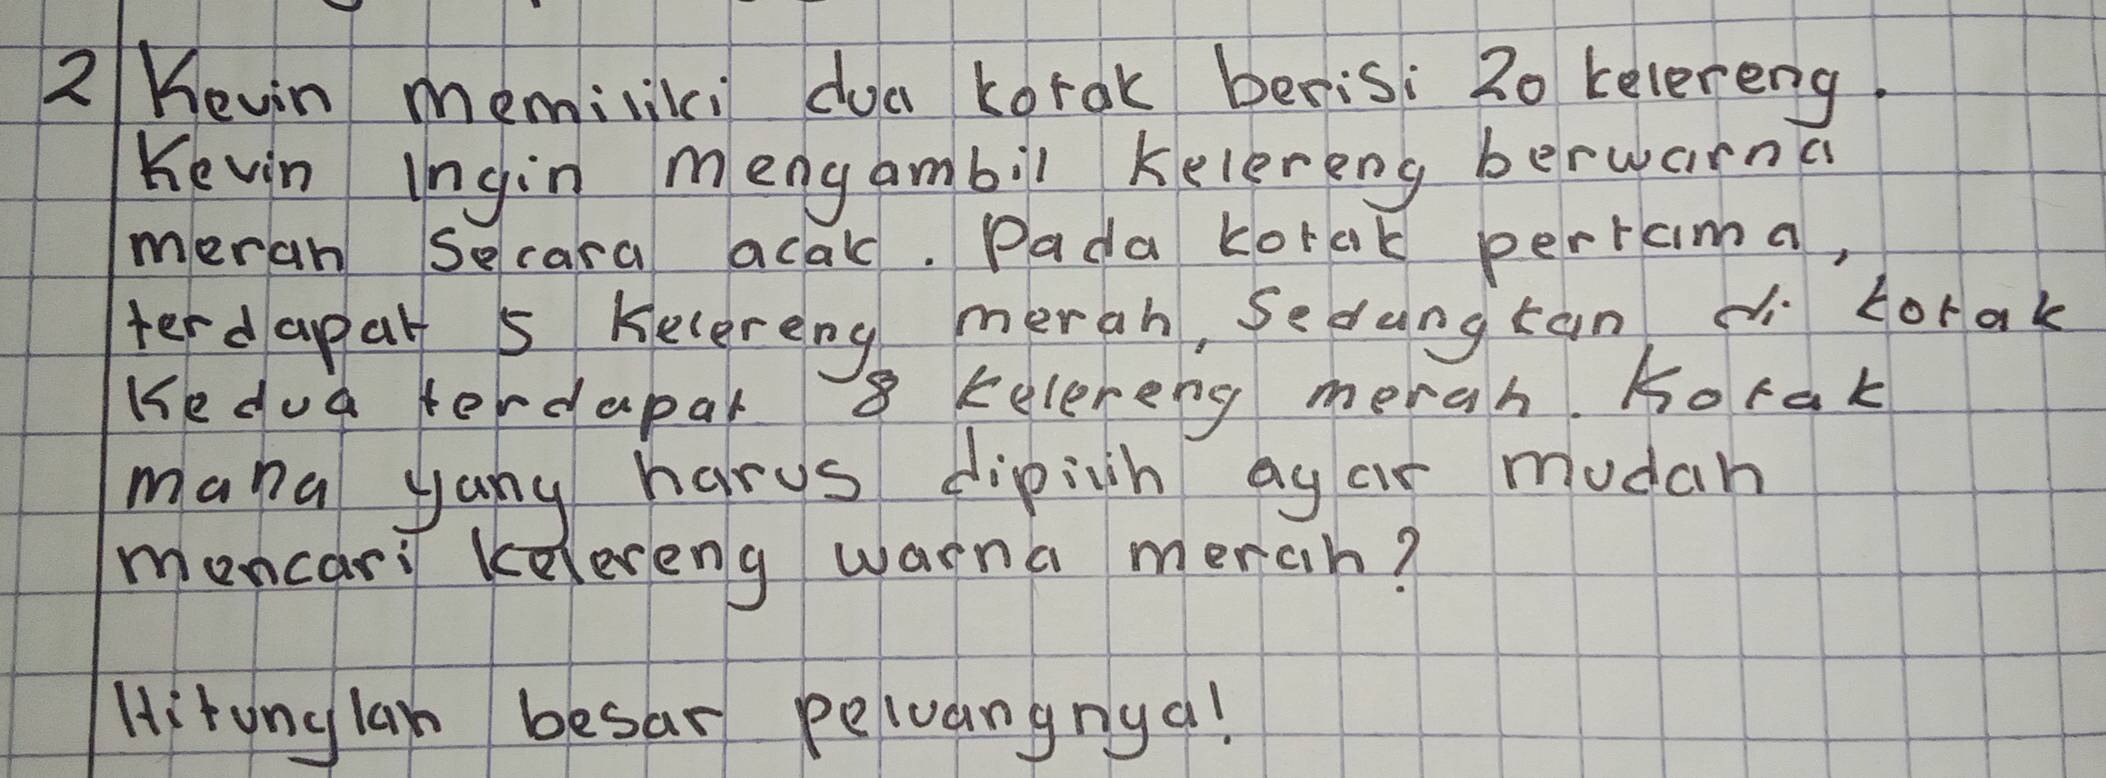 2 Kevin memiliki dua kotak berisi 20 kelereng.
Kevin Ingin mengambil Kelereng berwarna
merah Secara acak. Pada kotak pertama,
terdapat 5 Kelereng merah, Sedangkan di kotak
Kedua terdapat 8 kelereng merah. Kotak
mana yang harus dipilih agar mudah
mencari kelereng warna merah?
Hitunglah besar peluangnya!